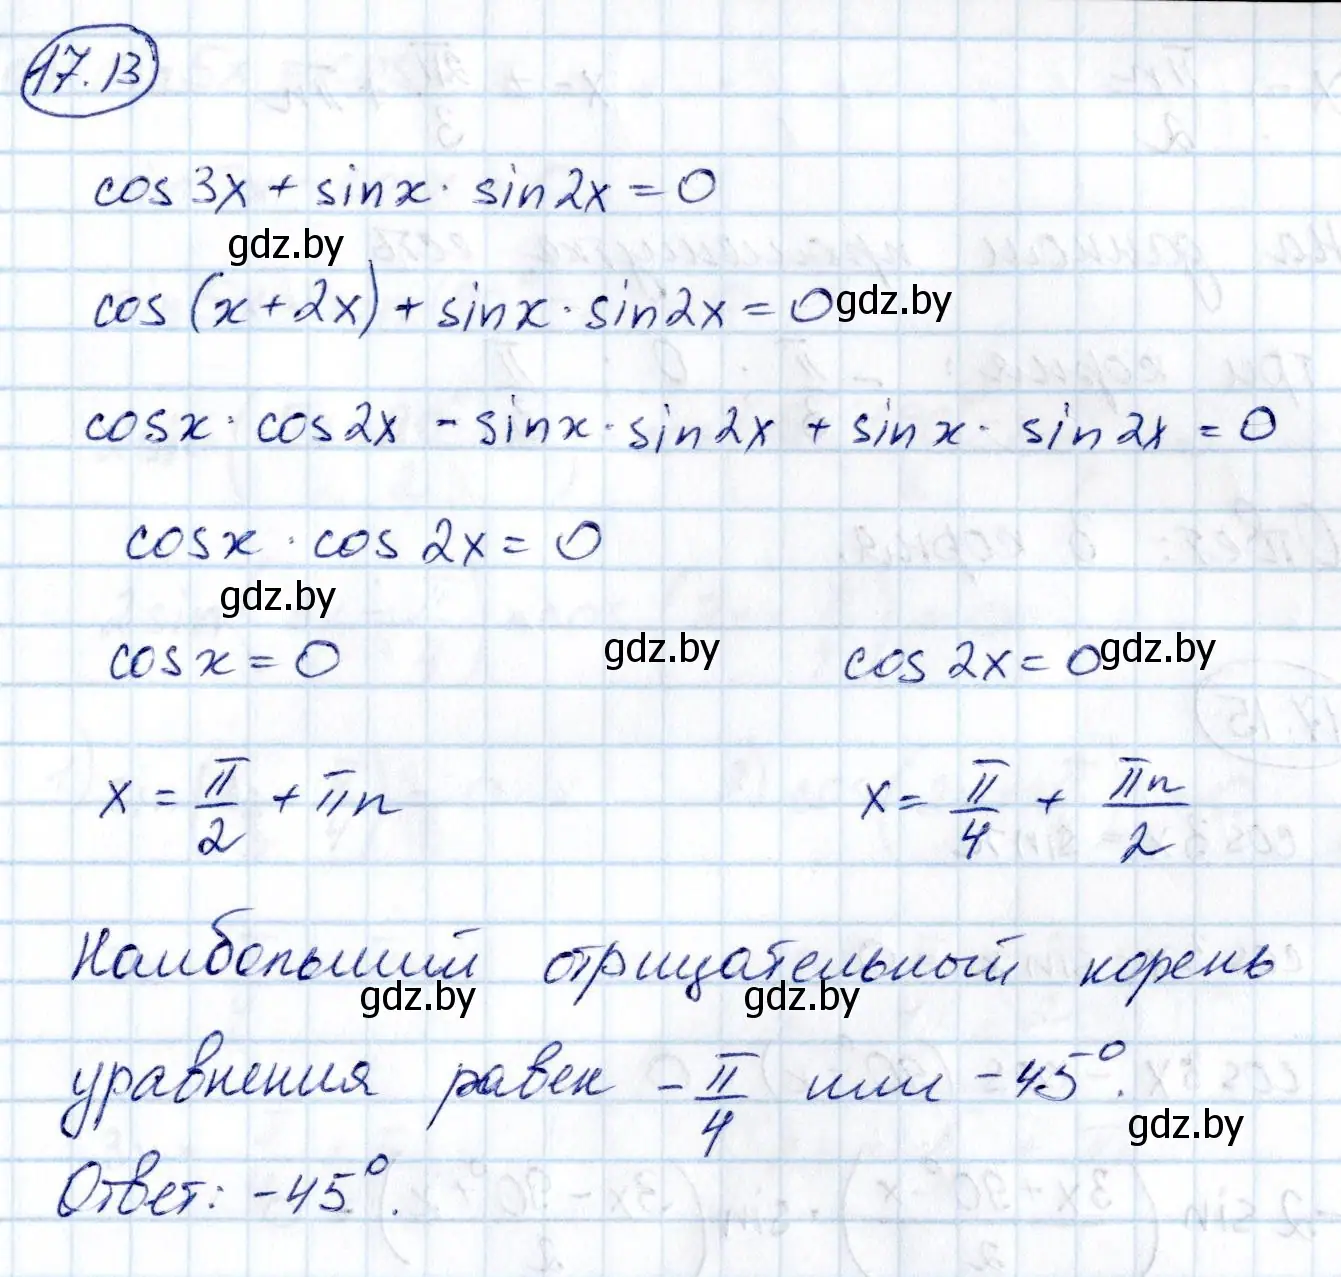 17.13
cos 3x + sin x · sin 2x = 0
gdz.by
cos (x + 2x) + sin x · sin 2x = 0 gdz.by
cos x · cos 2x - sin x · sin 2x + sin x · sin 2x = 0
cos x · cos 2x = 0
gdz.by
cos x = 0 gdz.by cos 2x = 0 gdz.by
x = π/2 + πn x = π/4 + πn/2
Наибольший отрицательный корень
gdz.by gdz.by
уравнения равен -π/4 или -45°.
gdz.by
Ответ: -45°.